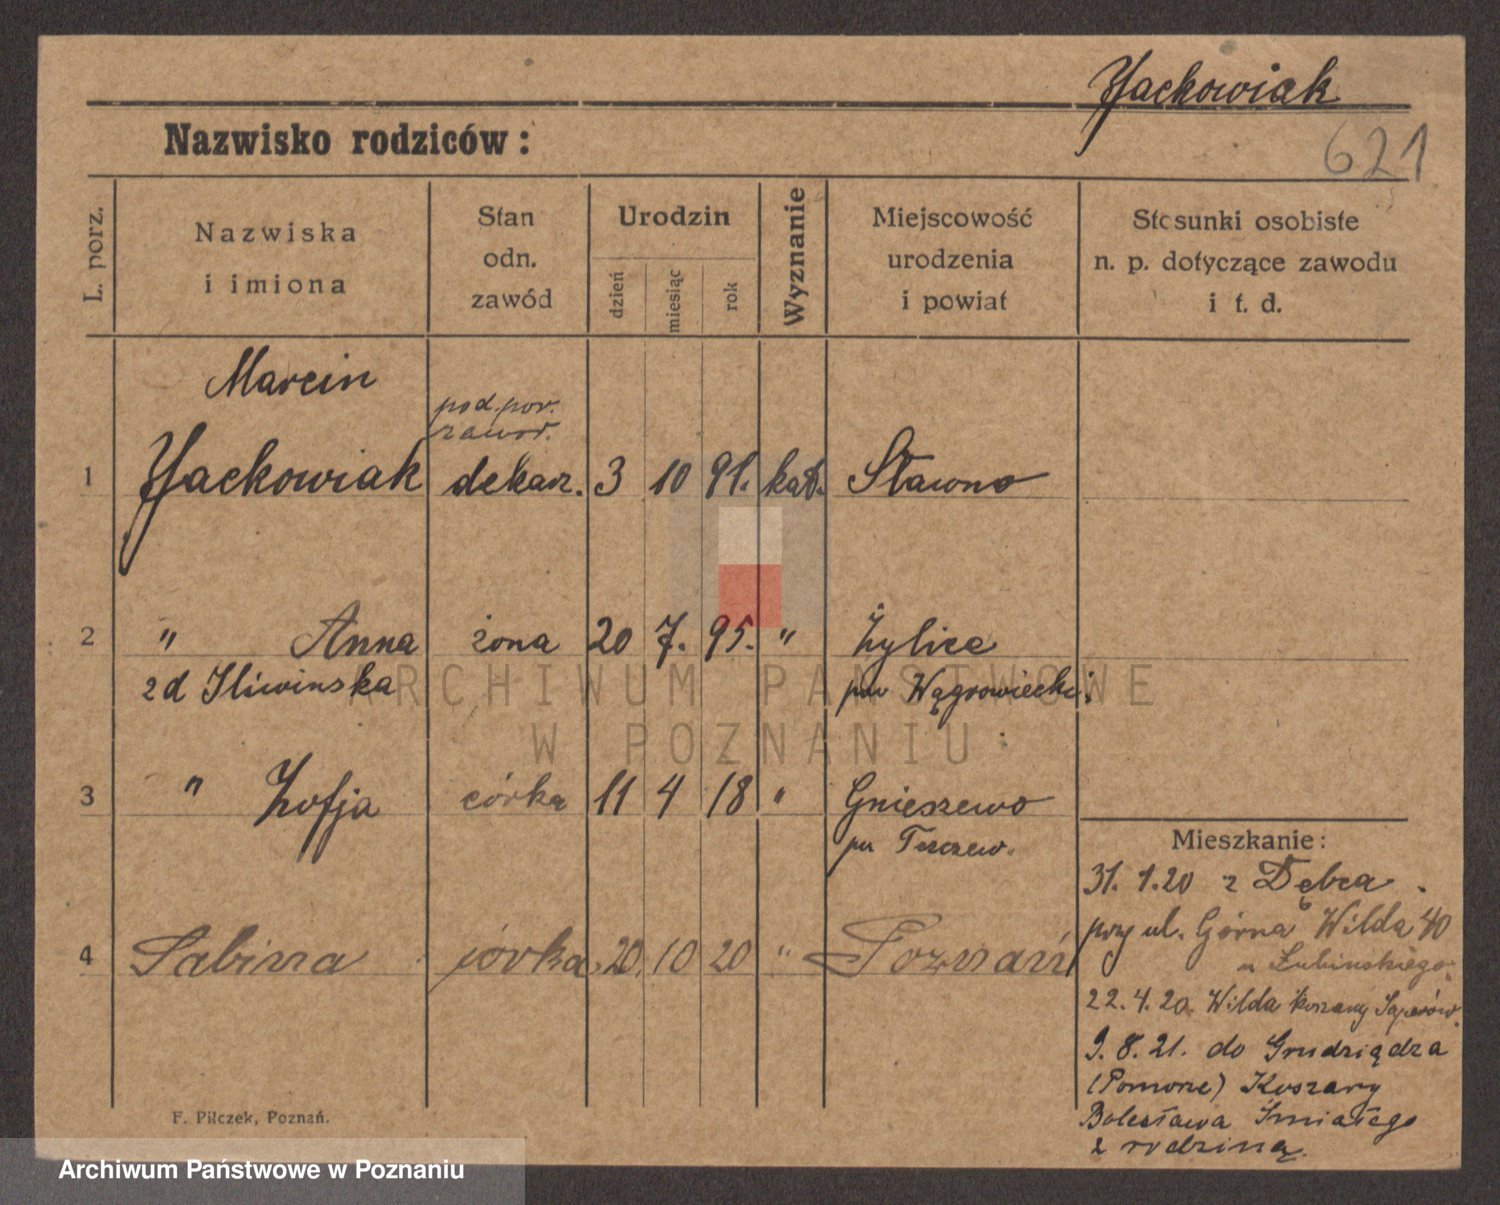 Yackowiak
621
Nazwisko rodziców:
L. porz.
Nazwiska
i imiona
Stan
odn.
zawód
Urodzin
dzień
miesiąc
rok
Wyznanie
Miejscowość
urodzenia
i powiat
Stosunki osobiste
n. p. dotyczące zawodu
i t. d.
Marcin
pod. por.
zawod.
1 Yackowiak dekarz. 3 10 91. kat. Sławno
2 " Anna żona 20 7. 95. " Żylice
zd Śliwinska pow Wągrowiecki.
3 " Zofja córka 11 4 18 " Gnieszewo
pw Tczew.
4 Sabina córka 20. 10 20 " Poznań
Mieszkanie:
31. 1. 20 z Dębca.
przy ul. Górna Wilda 40
u Łubinskiego.
22. 4. 20. Wilda koszary Saperów.
9. 8. 21. do Grudziądza
(Pomorze) Koszary
Bolesława Śmiałego
z rodziną.
F. Pilczek, Poznań.
ARCHIWUM PAŃSTWOWE
W POZNANIU
Archiwum Państwowe w Poznaniu